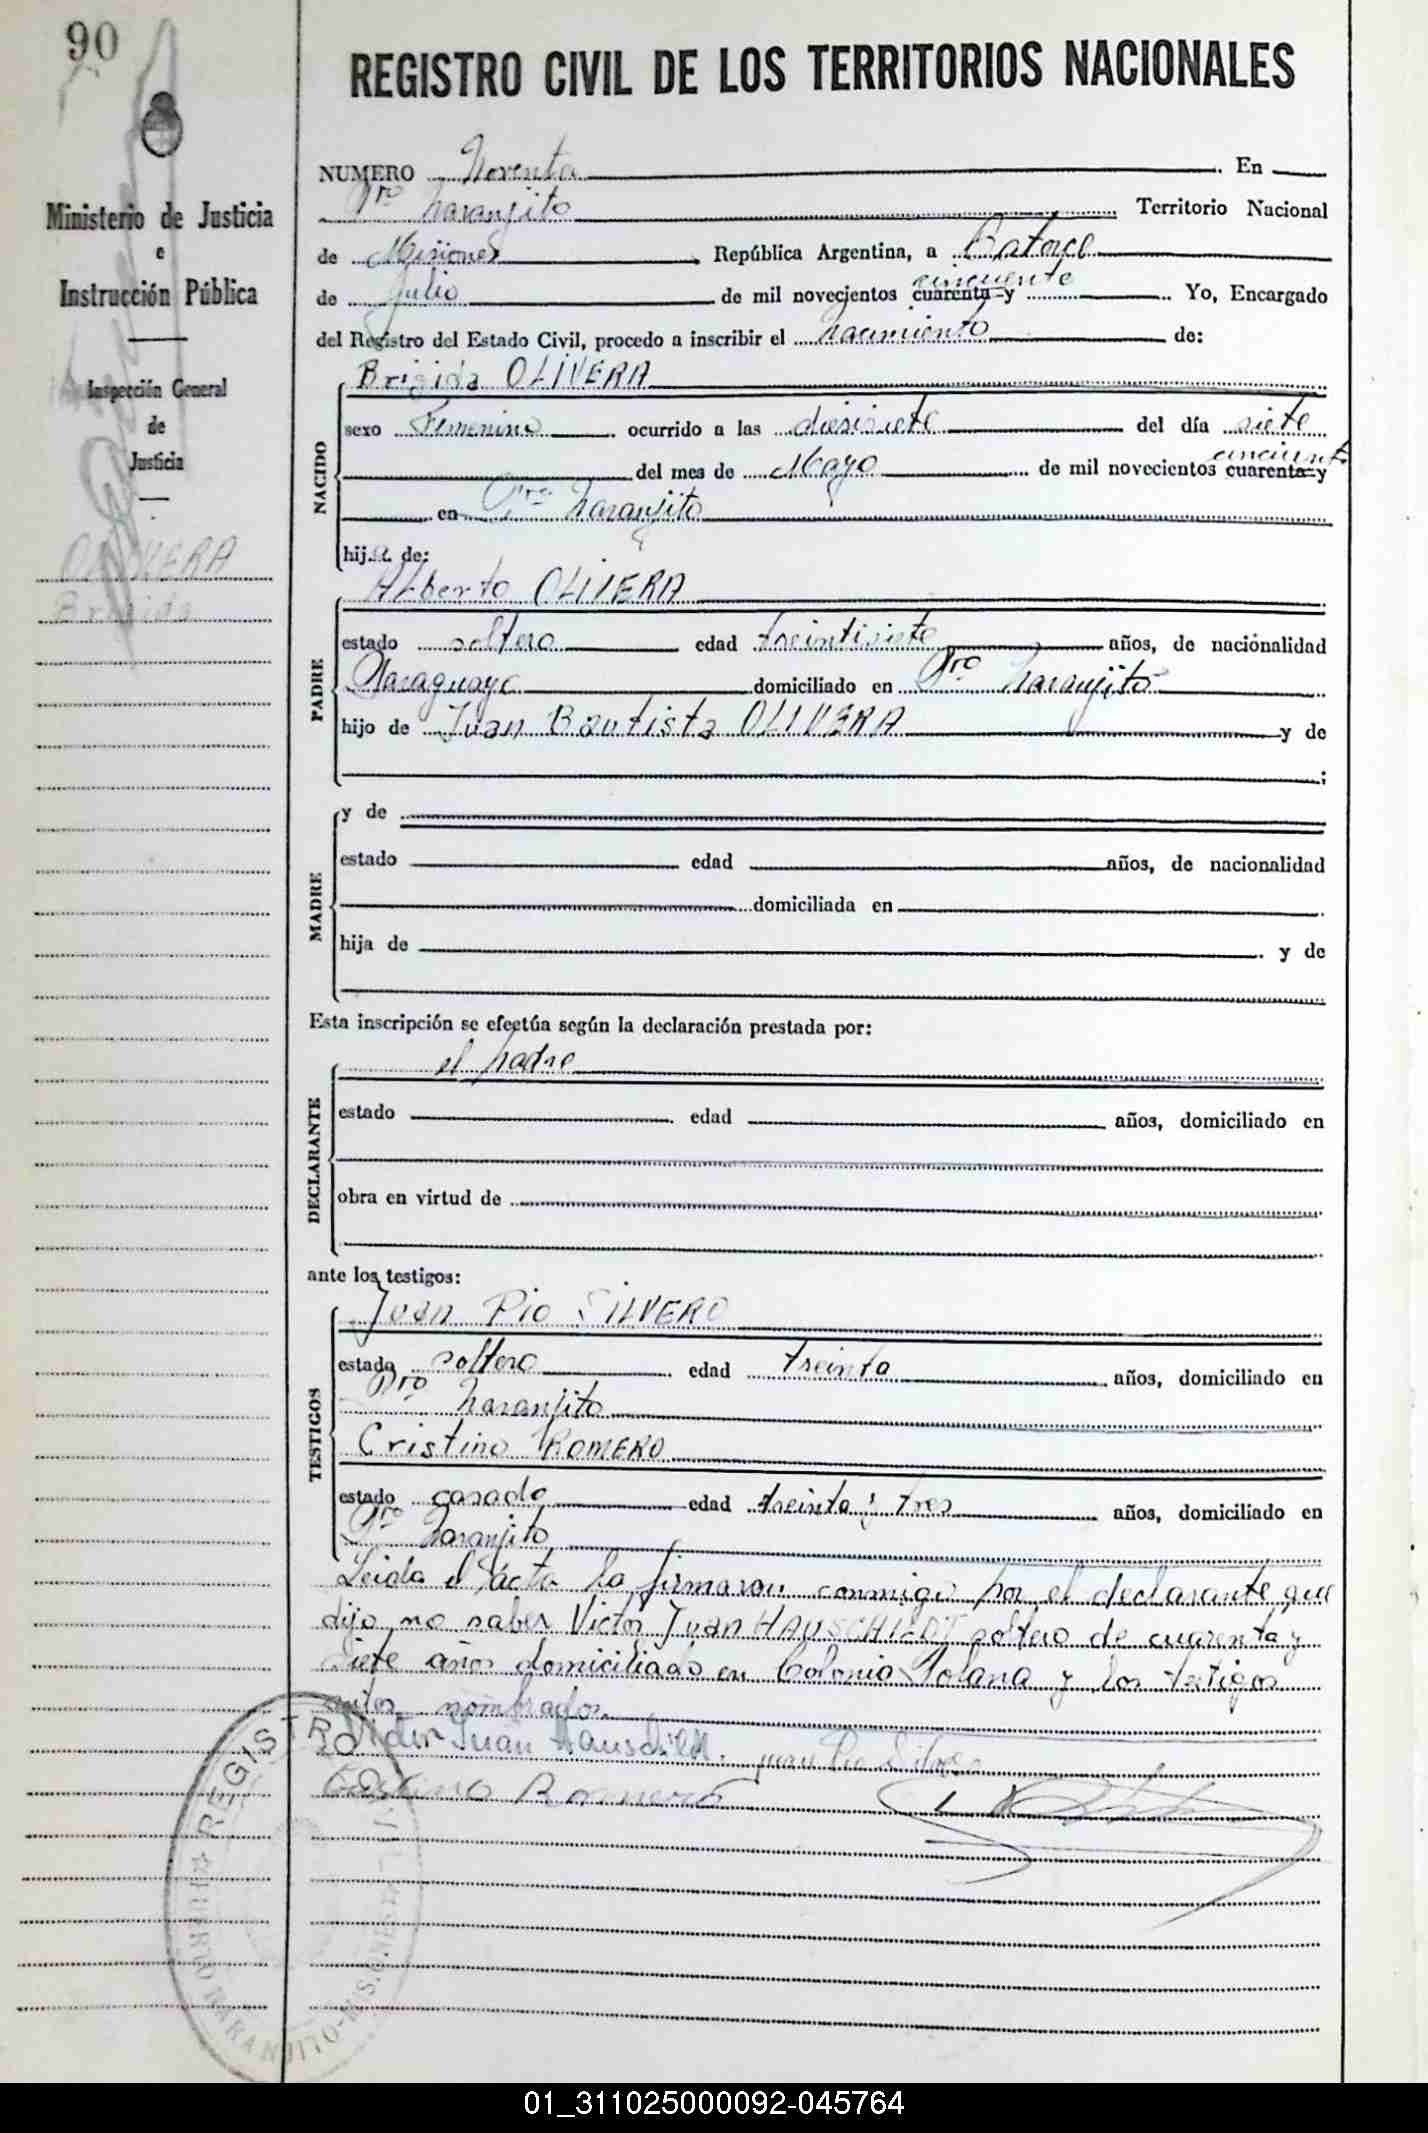 90
REGISTRO CIVIL DE LOS TERRITORIOS NACIONALES
Ministerio de Justicia
e
Instrucción Pública
Inspección General
de
Justicia
OLIVERA
Brigida
NUMERO Noventa En
Pto Naranjito Territorio Nacional
de Misiones República Argentina, a Catorce
de Julio de mil novecientos cuarenta y cincuenta Yo, Encargado
del Registro del Estado Civil, procedo a inscribir el Nacimiento de:
NACIDO
Brigida OLIVERA
sexo Femenino ocurrido a las diesisiete del día siete
del mes de Mayo de mil novecientos cuarenta y cincuenta
en Pto Naranjito
hija de:
PADRE
Alberto OLIVERA
estado soltero edad treintisiete años, de nacionalidad
Paraguayo domiciliado en Pto Naranjito
hijo de Juan Bautista OLIVERA y de
;
MADRE
y de
estado edad años, de nacionalidad
domiciliada en
hija de y de
Esta inscripción se efectúa según la declaración prestada por:
DECLARANTE
el padre
estado edad años, domiciliado en
obra en virtud de
ante los testigos:
TESTIGOS
Juan Pio SILVERO
estado soltero edad treinta años, domiciliado en
Pto Naranjito
Cristino ROMERO
estado casado edad treinta y tres años, domiciliado en
Pto Naranjito
Leida el acta la firmaron conmigo por el declarante que
dijo no saber Victor Juan HAUSCHILDT soltero de cuarenta y
siete años domiciliado en Colonia Polana y los testigos
antes nombrados.
Victor Juan Hauschildt. Juan Pio Silvero
Cristino Romero
REGISTRO CIVIL
PUERTO NARANJITO - MISIONES
01_311025000092-045764